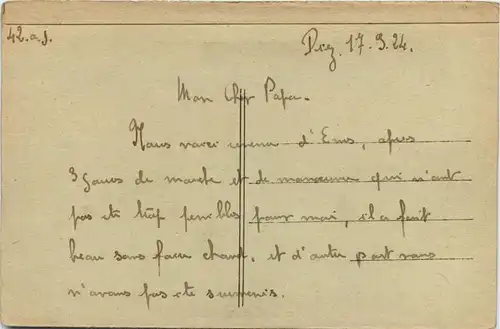 42.a.J.
Diez. 17.9.24.
Mon cher Papa.
Nous voici revenu d'Ems, après
3 jours de marche et de manœuvre qui n'ont
pas été trop penibles pour moi, il a fait
beau sans faire chaud, et d'autre part nous
n'avons pas été surmenés.